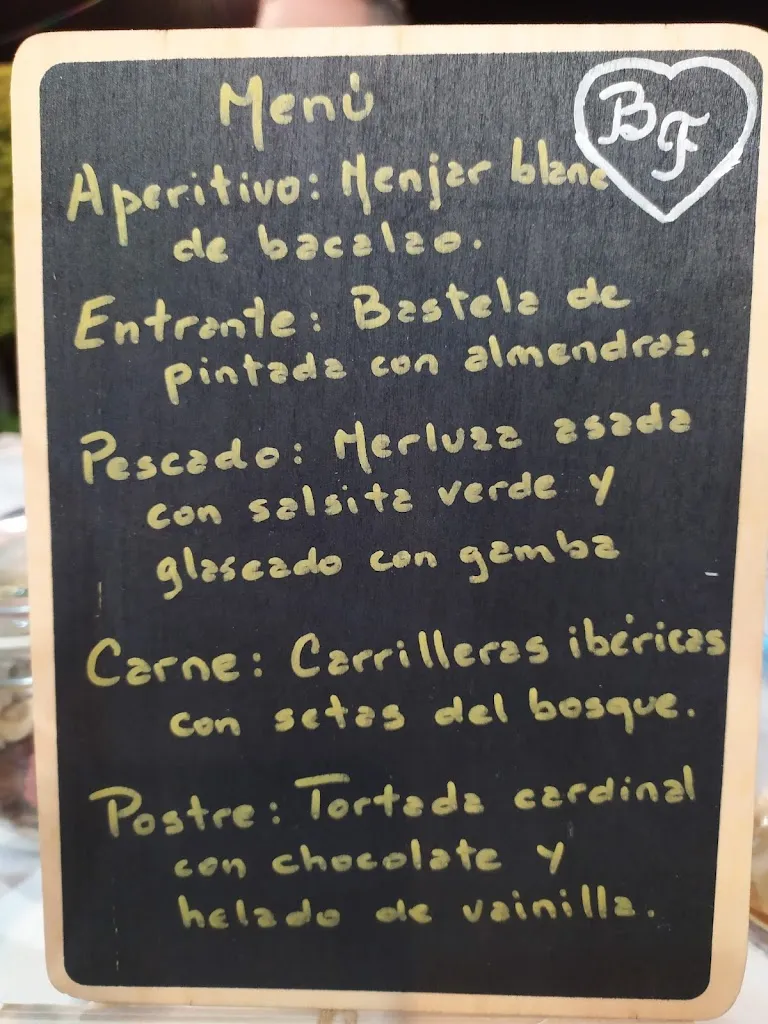 Menú
BF
Aperitivo: Menjar blanc
de bacalao.
Entrante: Bastela de
pintada con almendras.
Pescado: Merluza asada
con salsita verde y
glaseado con gamba
Carne: Carrilleras ibéricas
con setas del bosque.
Postre: Tortada cardinal
con chocolate y
helado de vainilla.